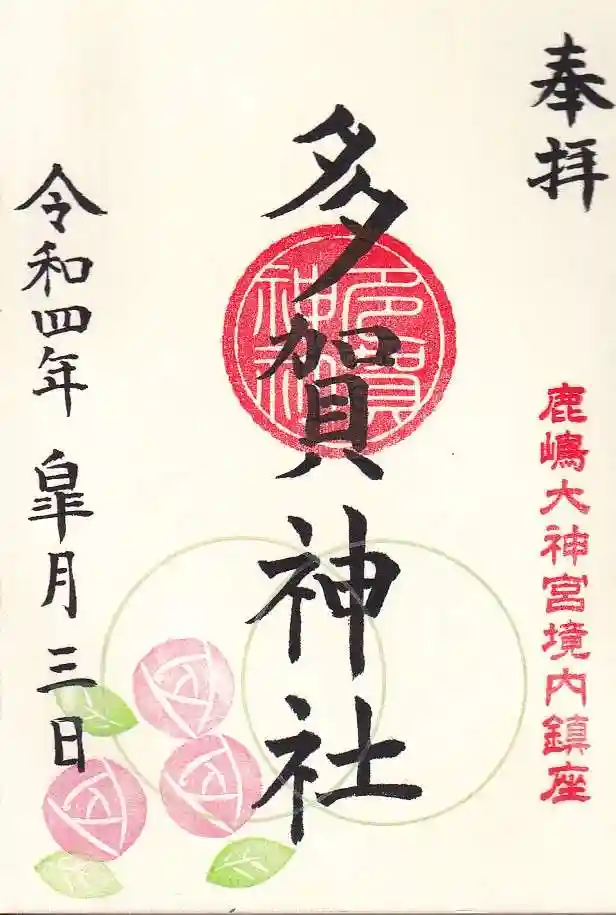 奉拝
鹿嶋大神宮境内鎮座
多賀神社
多賀神社
令和四年 皐月 三日